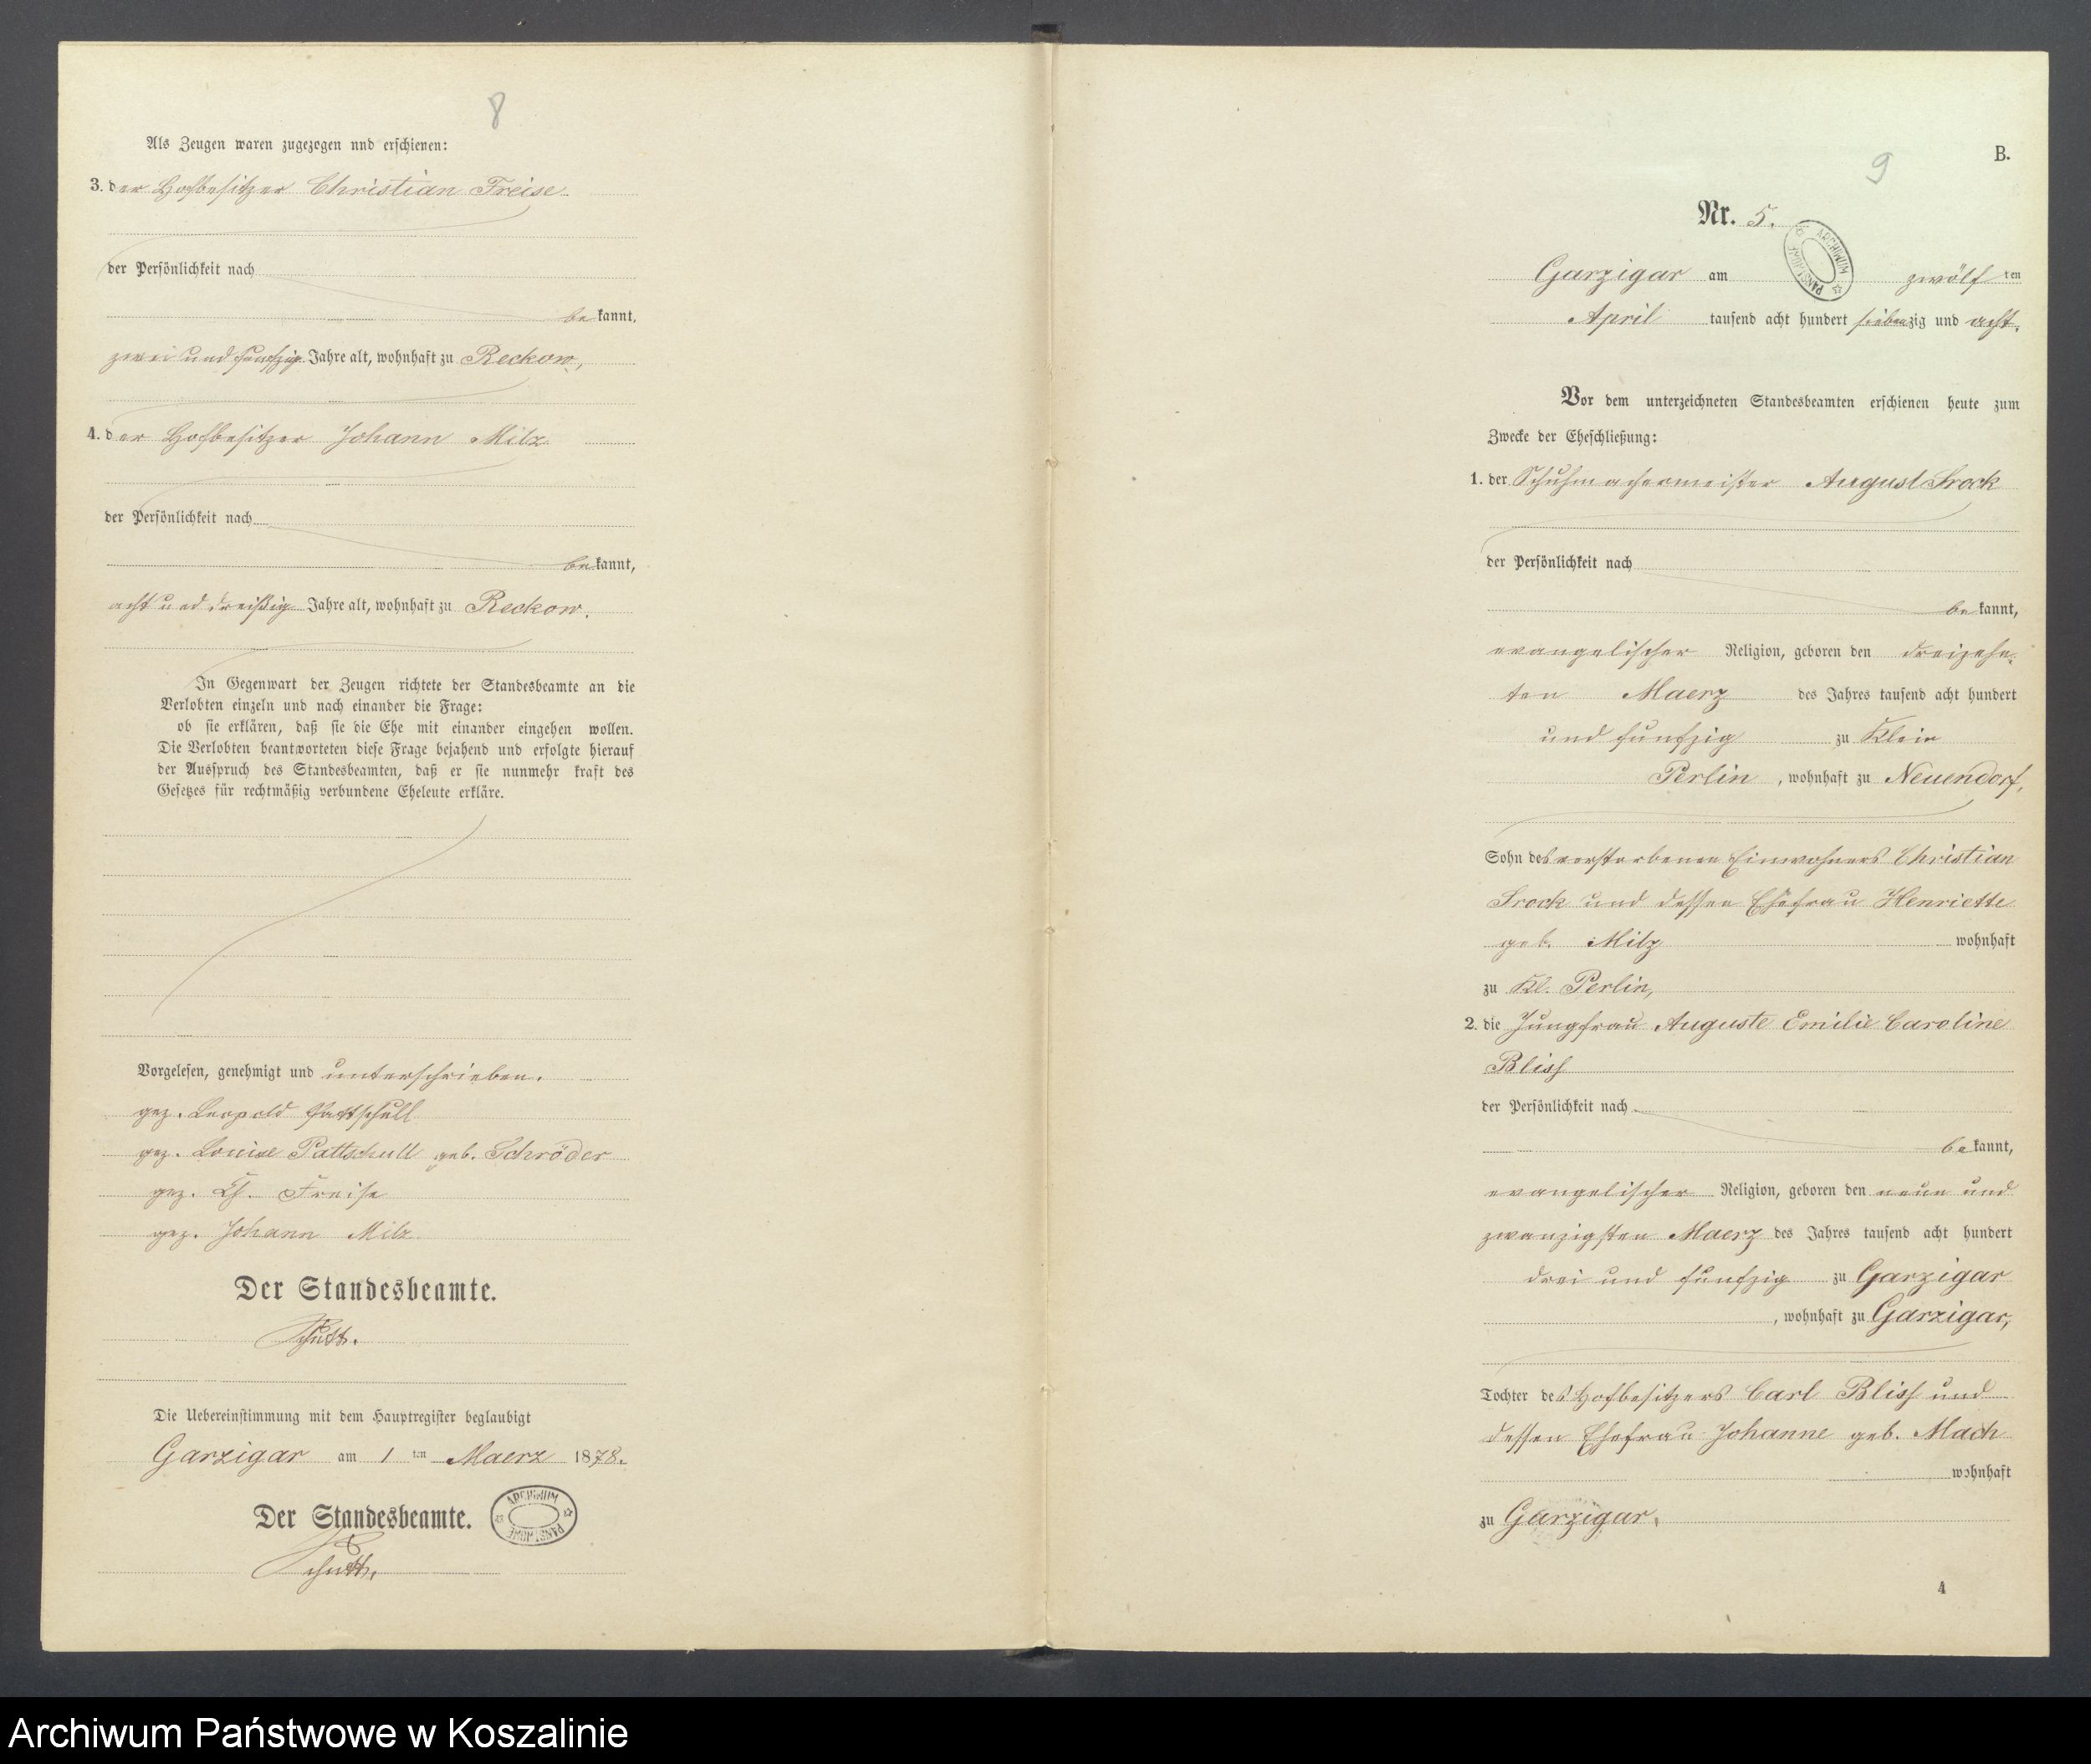 8
Als Zeugen waren zugezogen und erschienen:
3. der Hofbesitzer Christian Freise
der Persönlichkeit nach
be kannt,
zwei und funfzig Jahre alt, wohnhaft zu Reckow,
4. der Hofbesitzer Johann Milz
der Persönlichkeit nach
be kannt,
acht und dreißig Jahre alt, wohnhaft zu Reckow.
In Gegenwart der Zeugen richtete der Standesbeamte an die
Verlobten einzeln und nach einander die Frage:
ob sie erklären, daß sie die Ehe mit einander eingehen wollen.
Die Verlobten beantworteten diese Frage bejahend und erfolgte hierauf
der Ausspruch des Standesbeamten, daß er sie nunmehr kraft des
Gesetzes für rechtmäßig verbundene Eheleute erkläre.
Vorgelesen, genehmigt und unterschrieben.
gez. Leopold Pattschull
gez. Louise Pattschull geb. Schröder
gez. Ch. Freise
gez. Johann Milz.
Der Standesbeamte.
Schütt.
Die Uebereinstimmung mit dem Hauptregister beglaubigt
Garzigar am 1 ten Maerz 1878.
Der Standesbeamte.
ARCHIWUM PAŃSTWOWE
Schütt.
9
B.
Nr. 5.
ARCHIWUM PAŃSTWOWE
Garzigar am zwölf ten
April tausend acht hundert siebenzig und acht.
Vor dem unterzeichneten Standesbeamten erschienen heute zum
Zwecke der Eheschließung:
1. der Schuhmachermeister August Srock
der Persönlichkeit nach
be kannt,
evangelischer Religion, geboren den dreizehn-
ten Maerz des Jahres tausend acht hundert
und funfzig zu Klein
Perlin, wohnhaft zu Neuendorf,
Sohn des verstorbenen Einwohners Christian
Srock und dessen Ehefrau Henriette
geb. Milz wohnhaft
zu Kl. Perlin,
2. die Jungfrau Auguste Emilie Caroline
Blish
der Persönlichkeit nach
be kannt,
evangelischer Religion, geboren den neun und
zwanzigsten Maerz des Jahres tausend acht hundert
drei und funfzig zu Garzigar
, wohnhaft zu Garzigar,
Tochter des Hofbesitzers Carl Blish und
dessen Ehefrau Johanne geb. Mach
wohnhaft
zu Garzigar.
4
Archiwum Państwowe w Koszalinie